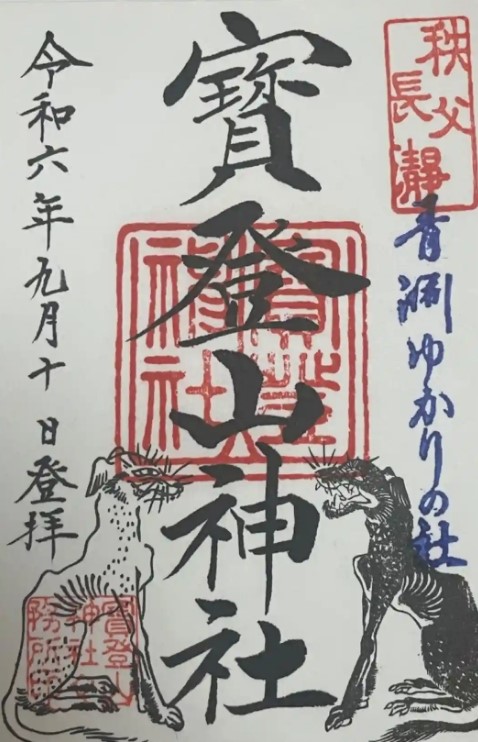 秩父
長瀞
青淵ゆかりの社
寳登山神社
寳登山
神社
務所印
令和六年九月十日登拝